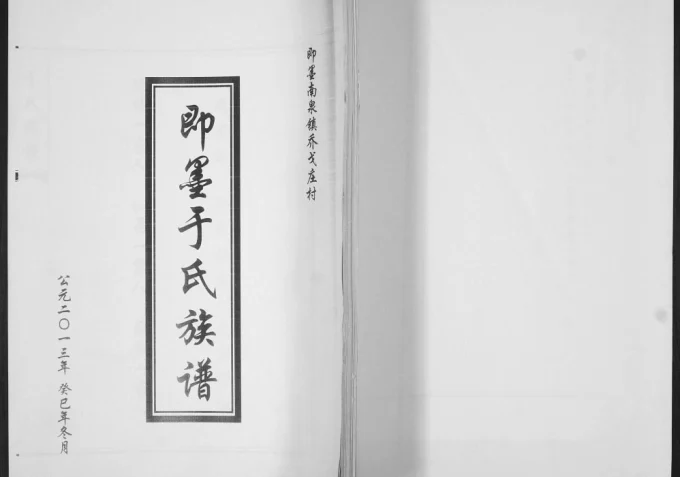 即墨南泉镇乔戈庄村
即墨于氏族谱
公元二〇一三年 癸巳年冬月